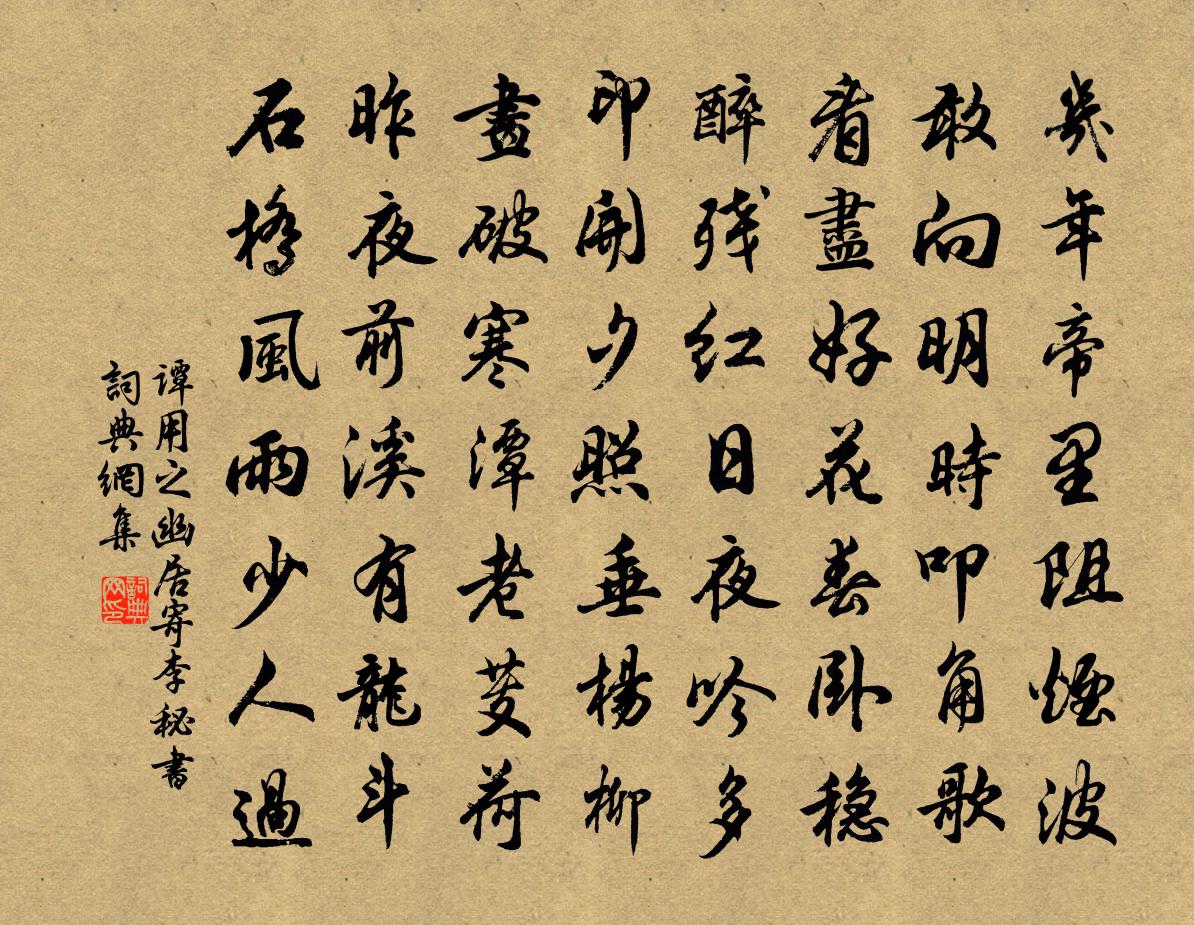 幾年帝里阻煙波
敢向明時叩角歌
看盡好花春臥穩
醉殘紅日夜吟多
印開夕照垂楊柳
畫破寒潭老芰荷
昨夜前溪有龍斗
石橋風雨少人過
譚用之幽居寄李秘書
詞典網集
詞典網印